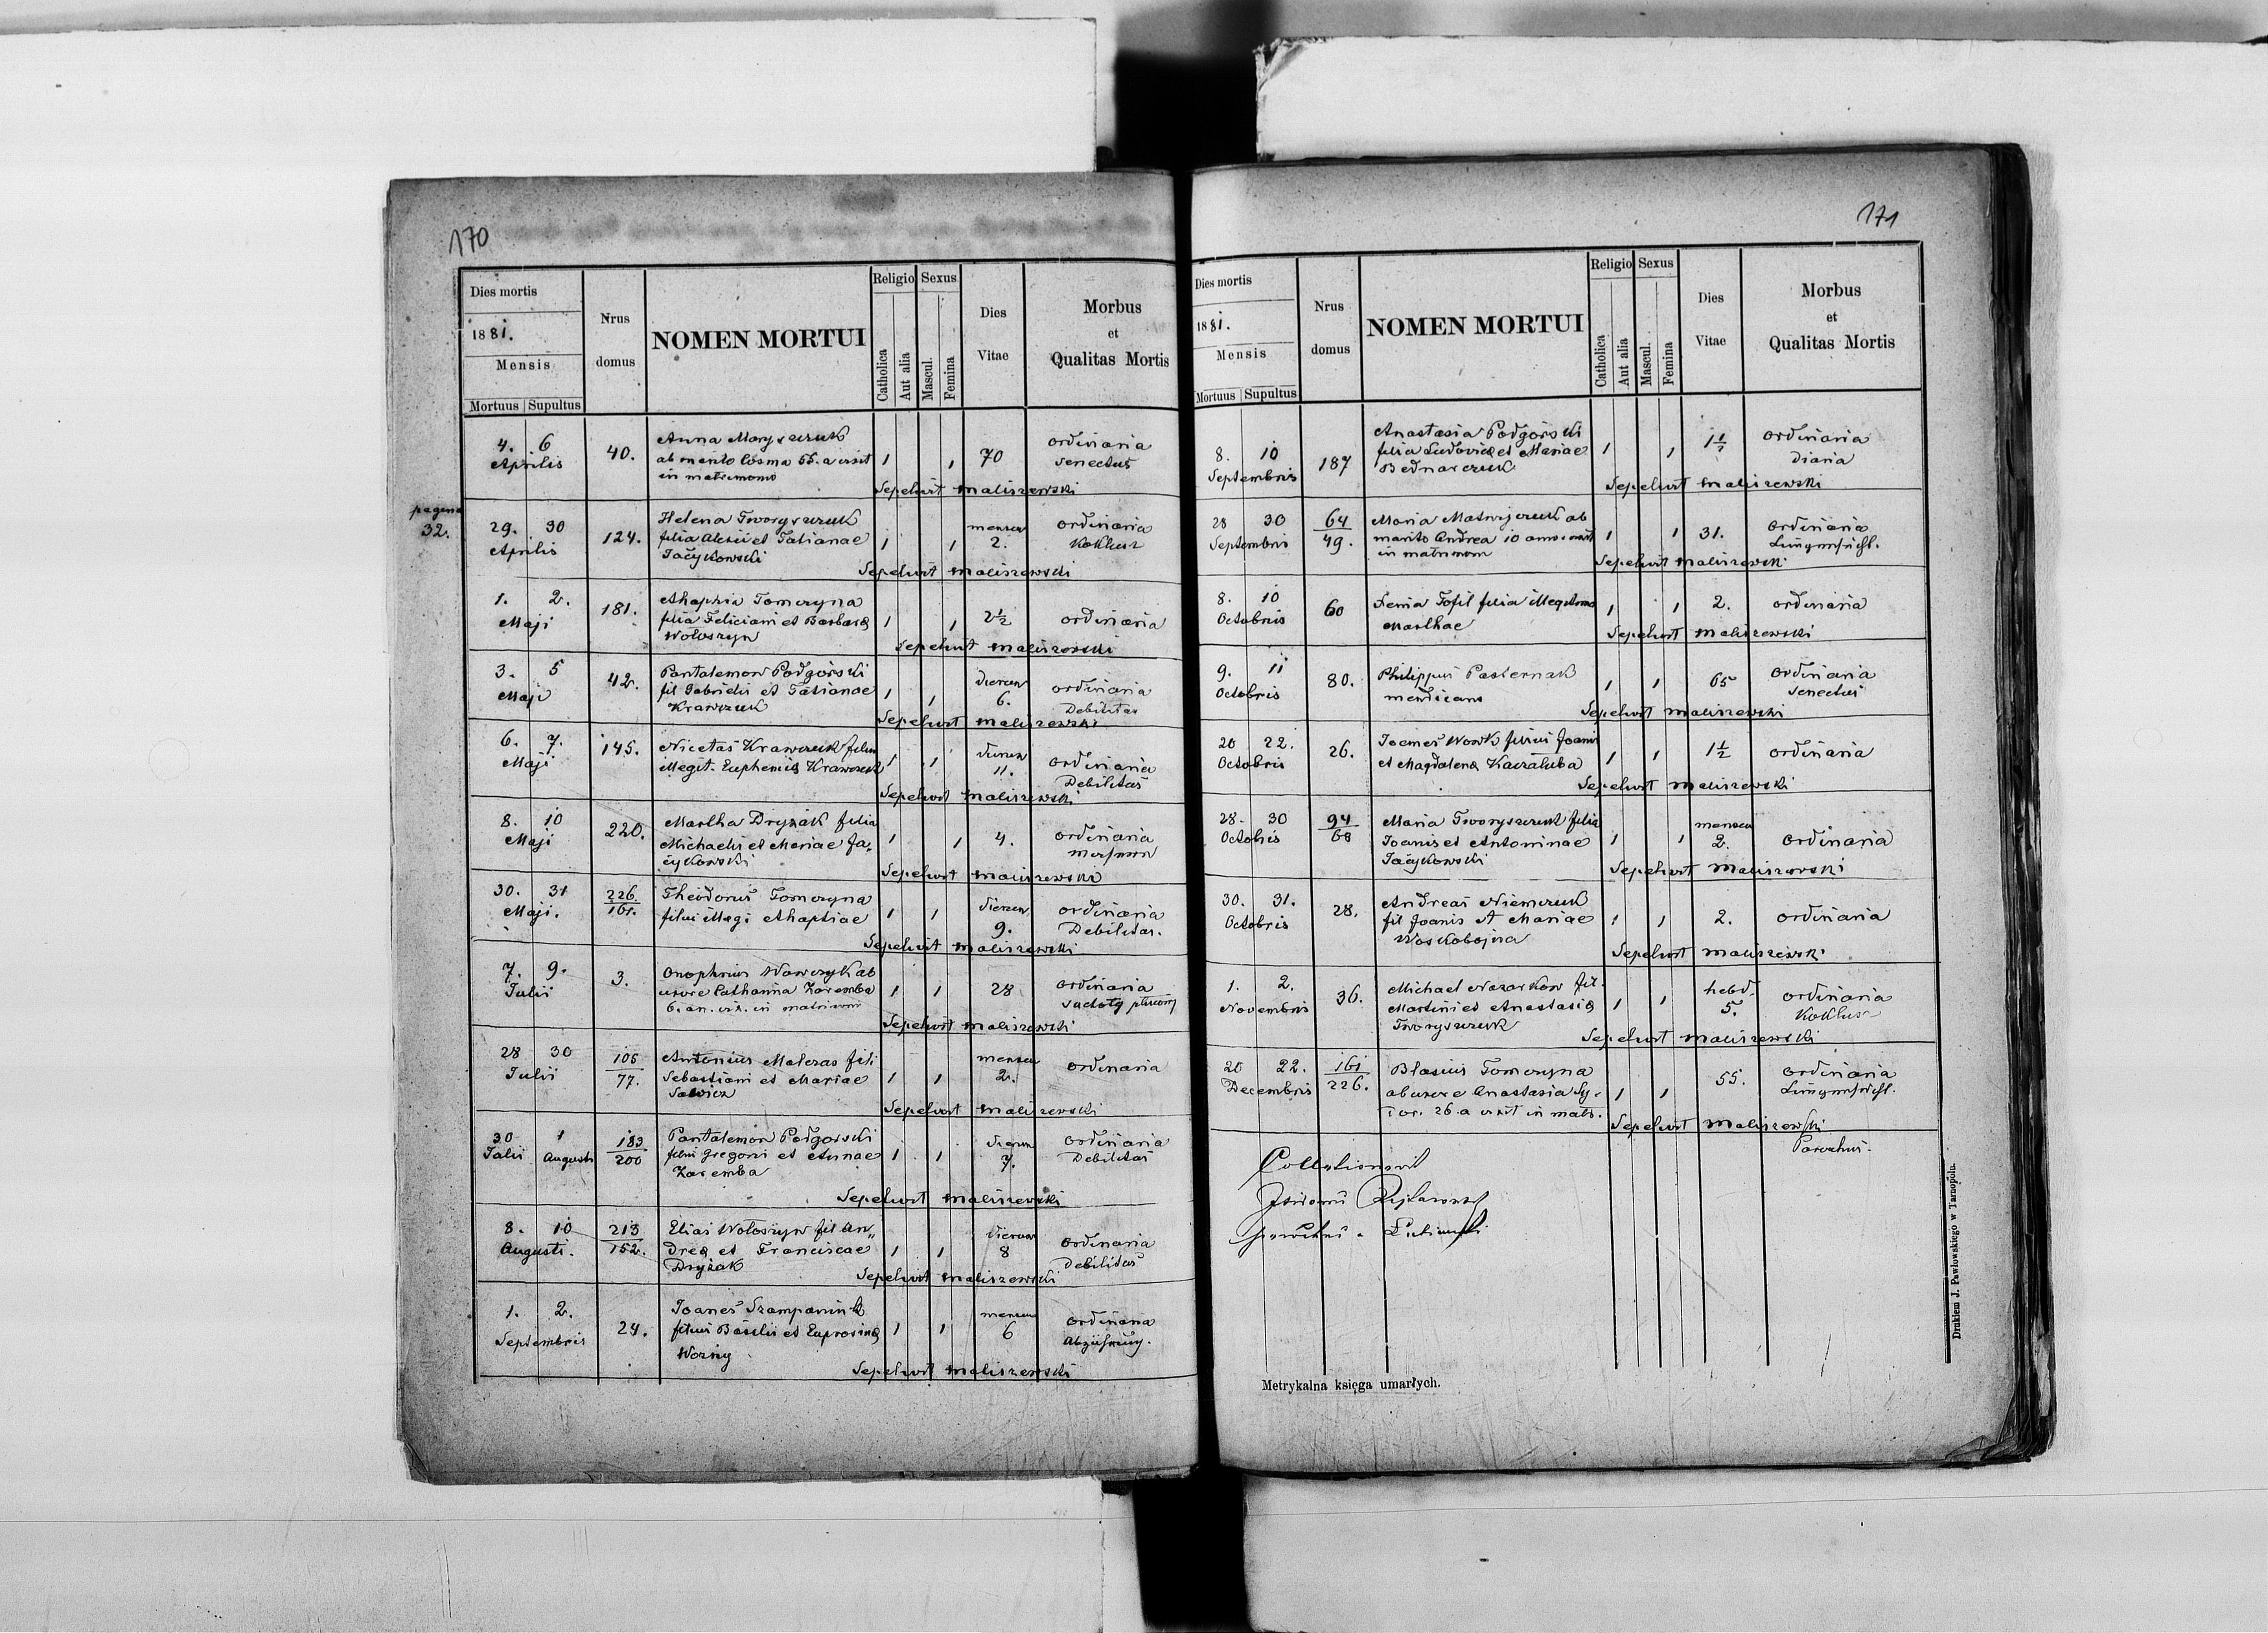 170
Dies mortis
1881.
Mensis
Mortuus Supultus
Nrus
domus
NOMEN MORTUI
Religio Sexus
Catholica
Aut alia
Mascul.
Femina
Dies
Vitae
Morbus
et
Qualitas Mortis
4. 6
Aprilis
40.
Anna
ab marito Cosma 55. a vixit
in matrimonio
1 1
70
ordinaria
senectus
Sepelivit Maliszewski
pagina
32.
29. 30
Aprilis
124.
Helena Tworyszczuk
filia Alexii et Tatianae
Jaćykowski
1 1
mensen
2.
ordinaria
Koklusz
Sepelivit Maliszewski
1. 2.
Maji
181.
Ahaphia Tomczyna
filia Feliciani et Barbarae
Wołoszyn
1 1
2 1/2
ordinaria
Sepelivit Maliszewski
3. 5
Maji
42.
Pantalemon Podgórski
fil Gabrielis et Tatianae
Krawczuk
1 1
dierum
6.
ordinaria
Debilitas
Sepelivit Maliszewski
6. 7.
Maji
145.
Nicetas Krawczuk filius
illegit. Euphemiae Krawczuk
1 1
dierum
11.
ordinaria
Debilitas
Sepelivit Maliszewski
8. 10
Maji
220.
Martha Dryżak filia
Michaelis et Mariae Ja„
ćykowski
1 1
4.
ordinaria
Sepelivit Maliszewski
30. 31
Maji.
226.
161.
Theodorus Tomczyna
filius illegi Ahaphiae
1 1
dierum
9.
ordinaria
Debilitas.
Sepelivit Maliszewski
7. 9.
Julii
3.
Onophrius Wawczyk ab
uxore Catharina Zaremba
6. an. vix. in matrimoni
1 1
28
ordinaria
suchoty
Sepelivit Maliszewski
28 30
Julii
106
77.
Antonius Malczas fili
Sebastiani et Mariae
Sawicz
1 1
mensen
2.
ordinaria
Sepelivit Maliszewski
30 1
Julii Augusti
183
200
Pantalemon Podgorski
filius Gregorii et Annae
Zaremba
1 1
dierum
7.
ordinaria
Debilitas
Sepelivit Maliszewski
8. 10
Augusti.
213
152.
Elias Wołoszyn fil An„
dreae et Franciscae
Dryżak
1 1
dierum
8
ordinaria
debilitas
Sepelivit Maliszewski
1. 2.
Septembris
24.
Joanes
filius Basilii et Euprosinae
Wozny
1 1
mensen
6
ordinaria
Abzehrung.
Sepelivit Maliszewski
171
Dies mortis
1881.
Mensis
Mortuus Supultus
Nrus
domus
NOMEN MORTUI
Religio Sexus
Catholica
Aut alia
Mascul.
Femina
Dies
Vitae
Morbus
et
Qualitas Mortis
8. 10
Septembris
187
Anastasia Podgórski
filia Ludovici et Mariae
Bednarczuk
1 1
1 1/2
ordinaria
Diaria
Sepelivit Maliszewski
28 30
Septembris
64
49.
Maria Matwijczuk ab
marito Andrea 10 anno vixit
in matrimon
1 1
31.
ordinaria
Lungensucht.
Sepelivit Maliszewski
8. 10
Octobris
60
Xenia Tofil filia illegitima
Marthae
1 1
2.
ordinaria
Sepelivit Maliszewski
9. 11
Octobris
80.
Philippus Pasternak
mendicans
1 1
65
ordinaria
senectus
Sepelivit Maliszewski
20 22.
Octobris
26.
Joanes Wowk filius Joanis
et Magdalenae Kaczałuba
1 1
1 1/2
ordinaria
Sepelivit Maliszewski
28. 30
Octobris
94
68
Maria Tworyszczuk filia
Joanis et Antoninae
Jaćykowski
1 1
mensen
2.
ordinaria
Sepelivit Maliszewski
30. 31.
Octobris
28.
Andreas Niemczuk
fil Joanis et Mariae
Woskobojna
1 1
2.
ordinaria
Sepelivit Maliszewski
1. 2.
Novembris
36.
Michael Nazarkow fil.
Martini et Anastasiae
Tworyszczuk
1 1
hebd.
5.
ordinaria
Koklusz
Sepelivit Maliszewski
20 22.
Decembris
161
226.
Blasius Tomczyna
ab uxore Anastasia Sy„
dor. 26 a vixit in matr.
1 1
55.
ordinaria
Lungensucht.
Sepelivit Maliszewski
Parochus.
Collationavit
Drukiem J. Pawłowskiego w Tarnopolu.
Metrykalna księga umarłych.